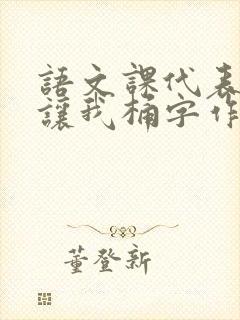 語文課代表
讓我桶字作
董登新